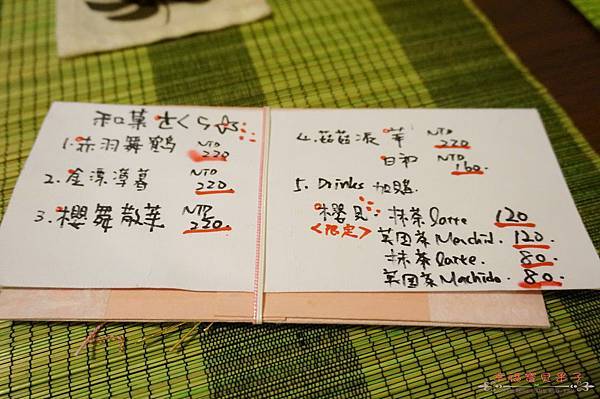 和菓さくら
1.赤羽舞鶴 NTD 220
2. NTD 220
3.櫻舞散華 NTD 220
4.菇菇派 NTD 220
日和 NTD 160
5. Drinks 加購
櫻見 : 抹茶latte 120
<限定> 英国茶Machid. 120.
抹茶latte. 80.
英国茶Machido. 80.